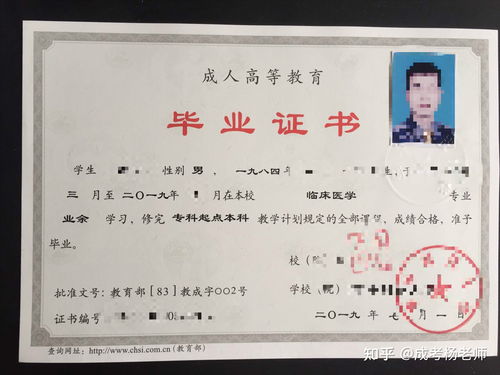 成人高等教育
毕业证书
学生 性别 男 ，一九八四年 生，于
三 月至 二〇一九年 月在本校 临床医学 专业
业余 学习，修完 专科起点本科 教学计划规定的全部课程，成绩合格，准予
毕业。
校（
批准文号：教育部［83］教成字002号 学校（院）
证书编号 二〇一九年 七 月 一 日
查询网址：http://www.chsi.com.cn（教育部）
知乎 @成考杨老师